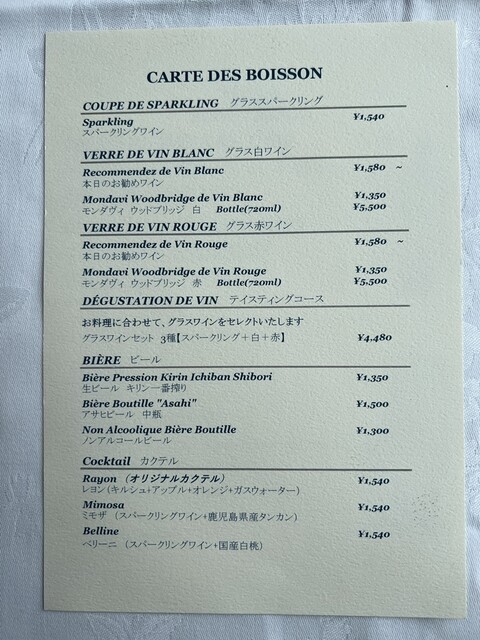 CARTE DES BOISSON
COUPE DE SPARKLING グラススパークリング
Sparkling ¥1,540
スパークリングワイン
VERRE DE VIN BLANC グラス白ワイン
Recommendez de Vin Blanc ¥1,580 ~
本日のお勧めワイン
Mondavi Woodbridge de Vin Blanc ¥1,350
モンダヴィ ウッドブリッジ 白 Bottle(720ml) ¥5,500
VERRE DE VIN ROUGE グラス赤ワイン
Recommendez de Vin Rouge ¥1,580 ~
本日のお勧めワイン
Mondavi Woodbridge de Vin Rouge ¥1,350
モンダヴィ ウッドブリッジ 赤 Bottle(720ml) ¥5,500
DÉGUSTATION DE VIN テイスティングコース
お料理に合わせて、グラスワインをセレクトいたします
グラスワインセット 3種【スパークリング+白+赤】 ¥4,480
BIÈRE ビール
Bière Pression Kirin Ichiban Shibori ¥1,350
生ビール キリン一番搾り
Bière Boutille "Asahi" ¥1,500
アサヒビール 中瓶
Non Alcoolique Bière Boutille ¥1,300
ノンアルコールビール
Cocktail カクテル
Rayon (オリジナルカクテル) ¥1,540
レヨン(キルシュ+アップル+オレンジ+ガスウォーター)
Mimosa ¥1,540
ミモザ (スパークリングワイン+鹿児島県産タンカン)
Belline ¥1,540
ベリーニ (スパークリングワイン+国産白桃)